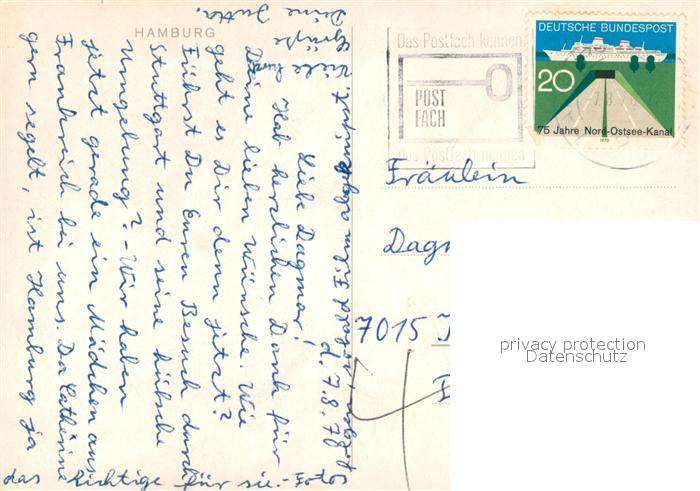 HAMBURG
d. 7.8.78
Liebe Dagmar!
Hab herzlichen Dank für
Deine lieben Wünsche. Wie
geht es Dir denn jetzt?
Führst Du Euren Besuch durch
Stuttgart und seine hübsche
Umgebung? - Wir haben
jetzt gerade ein Mädchen aus
Frankreich bei uns. Da Cathérine
gern segelt, ist Hamburg ja
das Richtige für sie. - Fotos
Viele liebe
Grüße
Deine Jutta.
Das Postfach kennen
POST
FACH
Das Postfach kennen
DEUTSCHE BUNDESPOST
20
75 Jahre Nord-Ostsee-Kanal
1970
Fräulein
Dagm
7015
privacy protection
Datenschutz